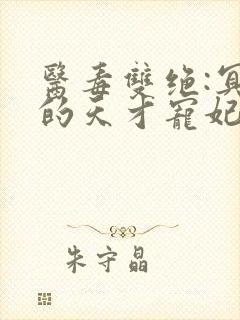 醫毒雙绝:冥
的天才寵妃
朱守晶